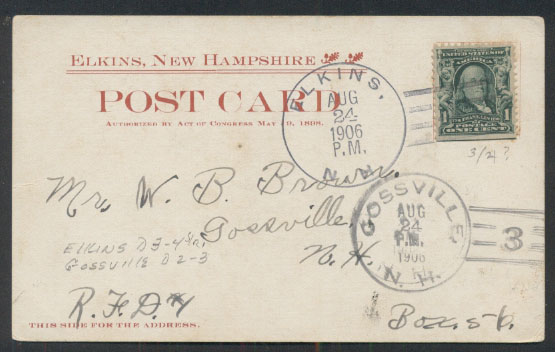 ELKINS, NEW HAMPSHIRE
POST CARD
AUTHORIZED BY ACT OF CONGRESS MAY 19, 1898.
ELKINS,
AUG
24
1906
P.M.
N.H.
UNITED STATES OF
AMERICA
1
ONE CENT
3/2?
Mr. W. B. Brown,
Gossville,
N. H.
GOSSVILLE,
AUG
24
P.M.
1906
N. H.
3
ELKINS D3-4
GOSSVILLE D2-3
R.F.D.
Box. 56.
THIS SIDE FOR THE ADDRESS.